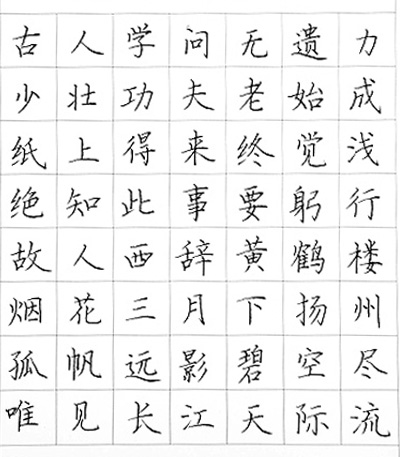 古人学问无遗力
少壮功夫老始成
纸上得来终觉浅
绝知此事要躬行
故人西辞黄鹤楼
烟花三月下扬州
孤帆远影碧空尽
唯见长江天际流